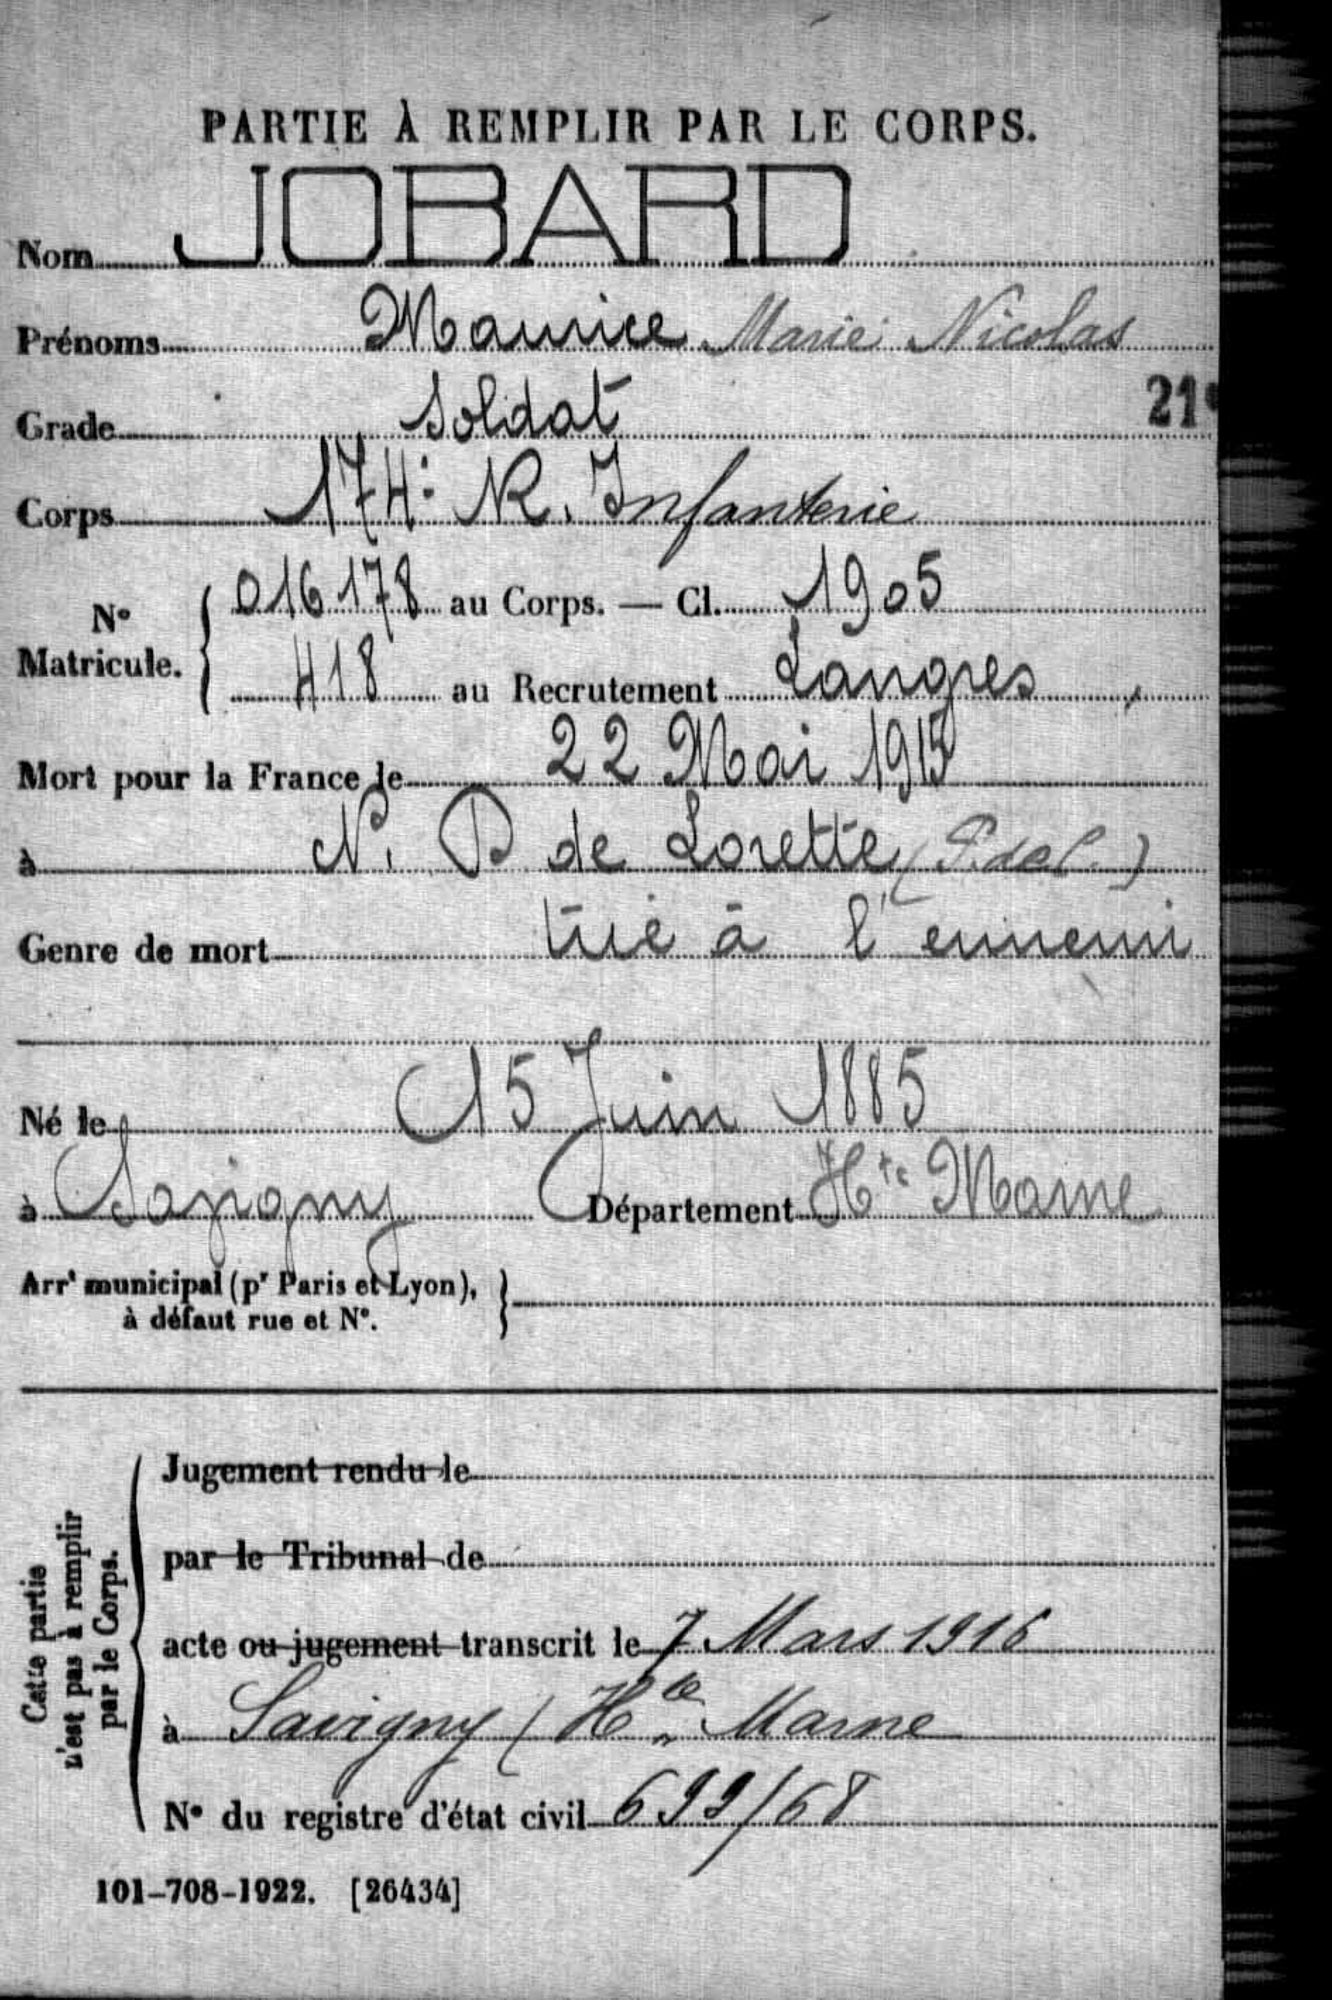 PARTIE À REMPLIR PAR LE CORPS.
Nom JOBARD
Prénoms Maurice Marie Nicolas
Grade Soldat
21e
Corps 174e R. Infanterie
N° Matricule. 016178 au Corps. — Cl. 1905
418 au Recrutement Langres
Mort pour la France le 22 Mai 1915
à N. D de Lorette (P. de C.)
Genre de mort tué à l'ennemi
Né le 15 Juin 1885
à Savigny Département Hte Marne
Arrt municipal (pr Paris et Lyon),
à défaut rue et N°.
Cette partie
n'est pas à remplir
par le Corps.
Jugement rendu le
par le Tribunal de
acte ou jugement transcrit le 7 Mars 1916
à Savigny (Hte Marne
N° du registre d'état civil 699/68
101-708-1922. [26434]